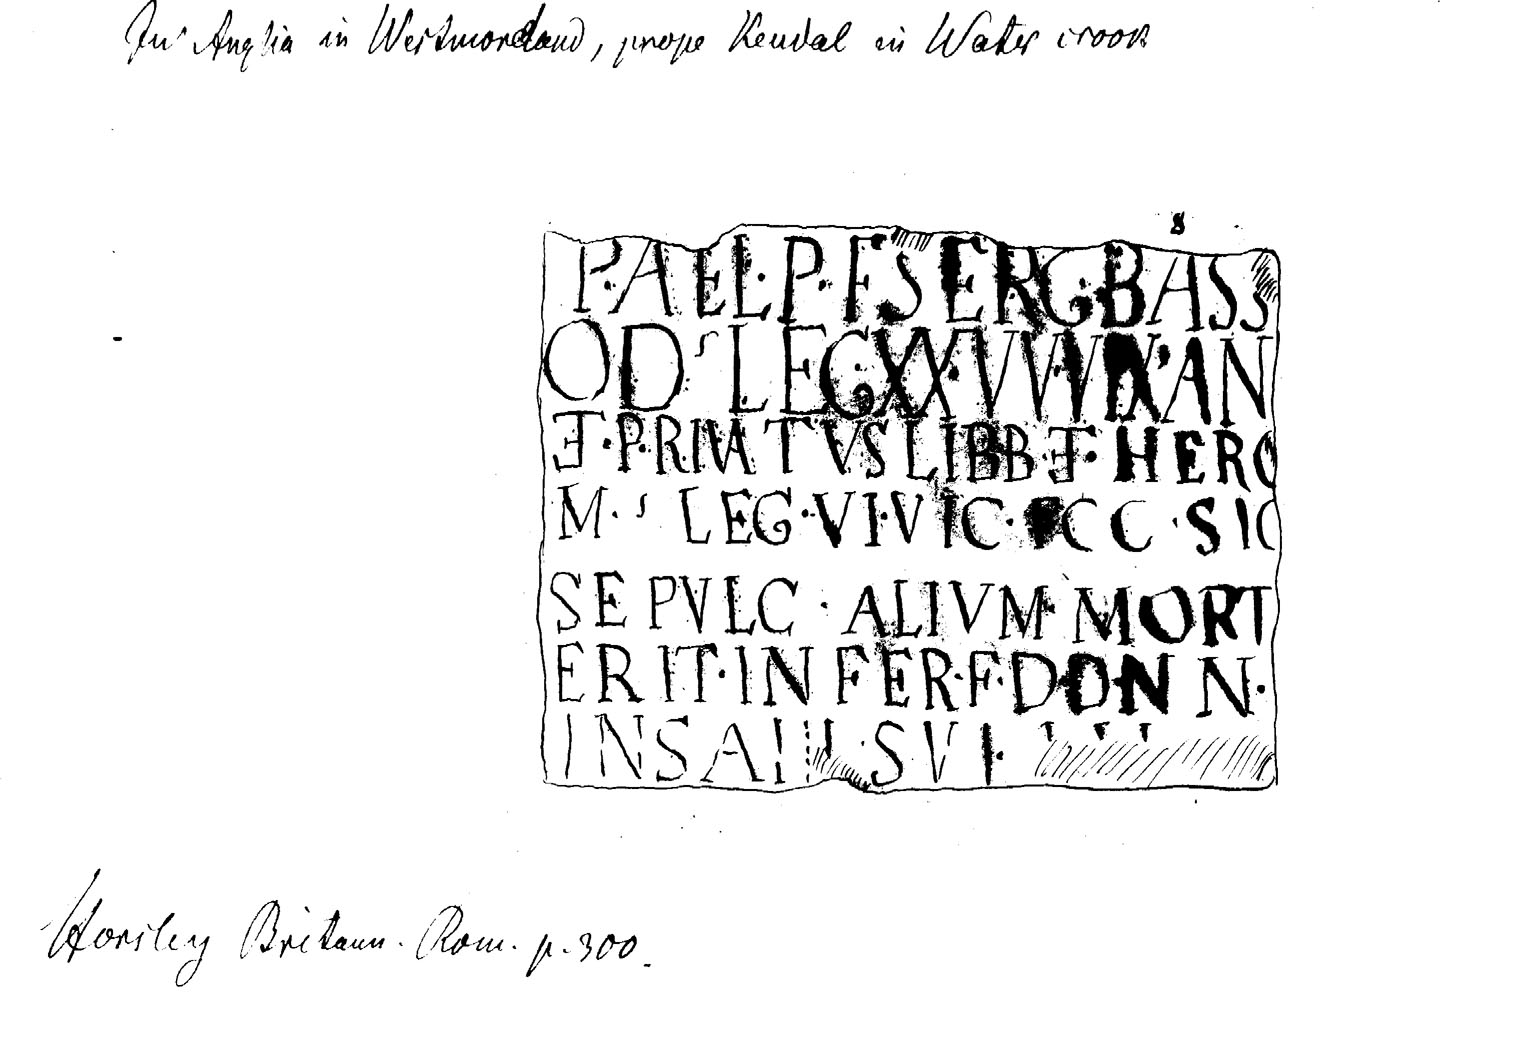 In Anglia in Westmoreland, prope Kendal in Water crook
P·AEL·P·F SERG·BASS
OD S LEG XX·VVV IX AN
Ǝ·PRIVATVS LIBB Ǝ·HERC
M· S LEG·VI·VIC· CC·SIC
SEPVLC·ALIVM MORT
ERIT·INFER·F·D·D·N N·
INSA SVI·
Horsley Britann. Rom. p. 300.